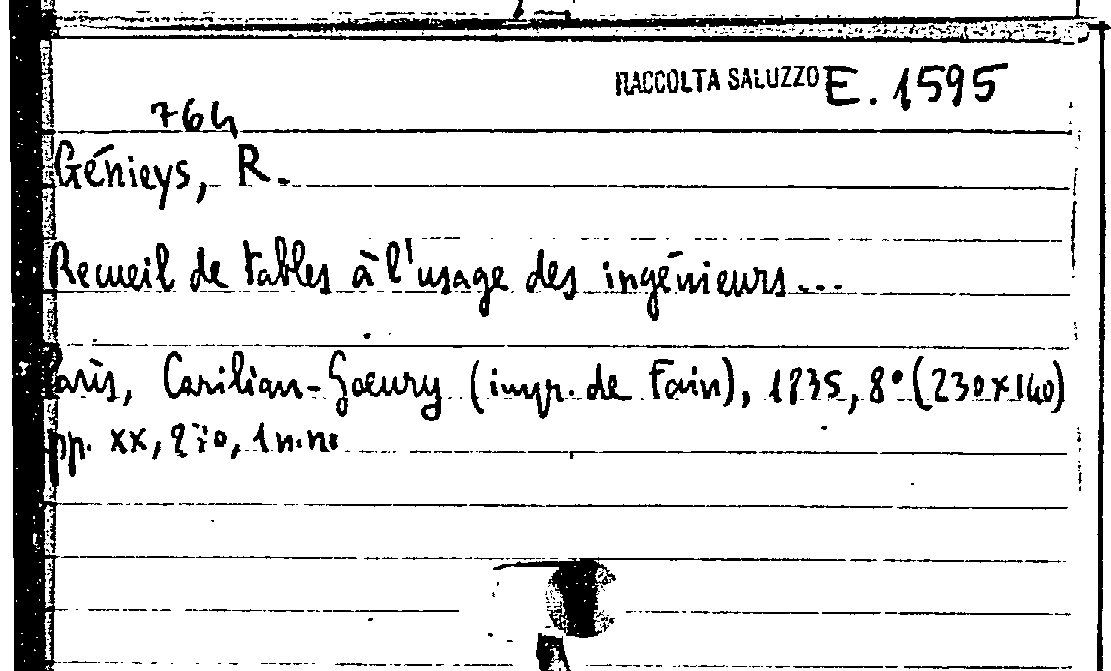 RACCOLTA SALUZZO E. 1595
764
Génieys, R.
Recueil de tables à l'usage des ingénieurs...
Paris, Carilian-Goeury (impr. de Fain), 1835, 8° (230x140)
pp. xx, 270, 1 n.n.